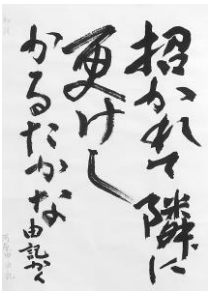 招かれて隣に
更けし
かるたかな
由記かく